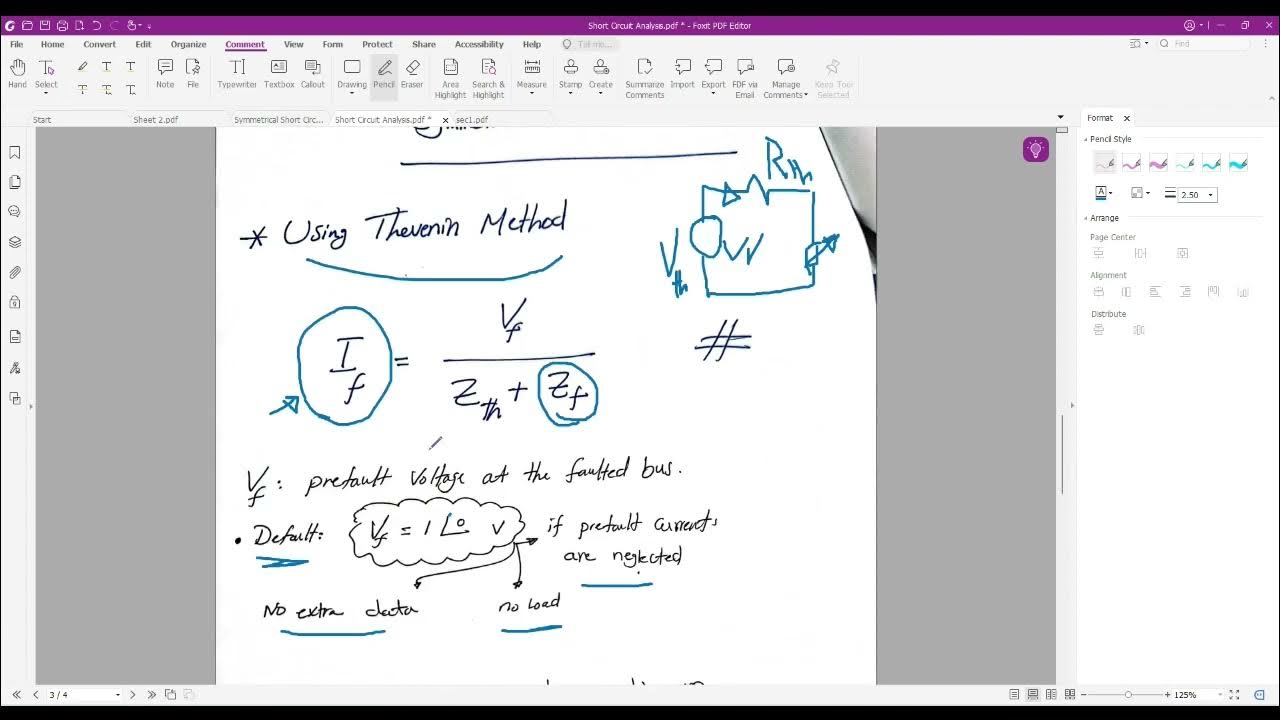 Short Circuit Analysis.pdf * - Foxit PDF Editor
File Home Convert Edit Organize Comment View Form Protect Share Accessibility Help Tell me... Find
Hand Select Note File Typewriter Textbox Callout Drawing Pencil Eraser Area Highlight Search & Highlight Measure Stamp Create Summarize Comments Import Export FDF via Email Manage Comments Keep Tool Selected
Start Sheet 2.pdf Symmetrical Short Circ... Short Circuit Analysis.pdf * sec1.pdf
Format
Pencil Style
2.50
Arrange
Page Center
Alignment
Distribute
Rth
* Using Thevenin Method
Vth
If = Vf / (Zth + Zf)
Vf : prefault voltage at the faulted bus.
• Default: Vf = 1 ∠0 V if prefault currents
are neglected
No extra data no load
3 / 4
125%